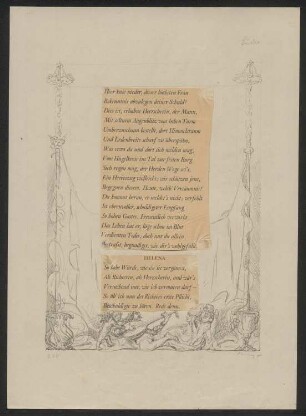 Hier knie nieder, dieser höchsten Frau
Bekenntnis abzulegen deiner Schuld.
Dies ist, erhabne Herrscherin, der Mann,
Mit seltnem Augenblitz vom hohen Turm
Umherzuschaun bestellt, dort Himmelsraum
Und Erdenbreite scharf zu überspähn,
Was etwa da und dort sich melden mag,
Vom Hügelkreis ins Tal zur festen Burg
Sich regen mag, der Herden Woge sei's,
Ein Heereszug vielleicht; wir schützen jene,
Begegnen diesem. Heute, welch Versäumnis!
Du kommst heran, er meldet's nicht; verfehlt
Ist ehrenvoller, schuldigster Empfang
So hohen Gastes. Freventlich verwirkt
Das Leben hat er, läge schon im Blut
Verdienten Todes; doch nur du allein
Bestrafst, begnadigst, wie dir's wohlgefällt.
HELENA
So hohe Würde, wie du sie vergönnst,
Als Richterin, als Herrscherin, und wär's
Versuchend nur, wie ich vermuten darf –
So üb ich nun des Richters erste Pflicht,
Beschuldigte zu hören. Rede denn.